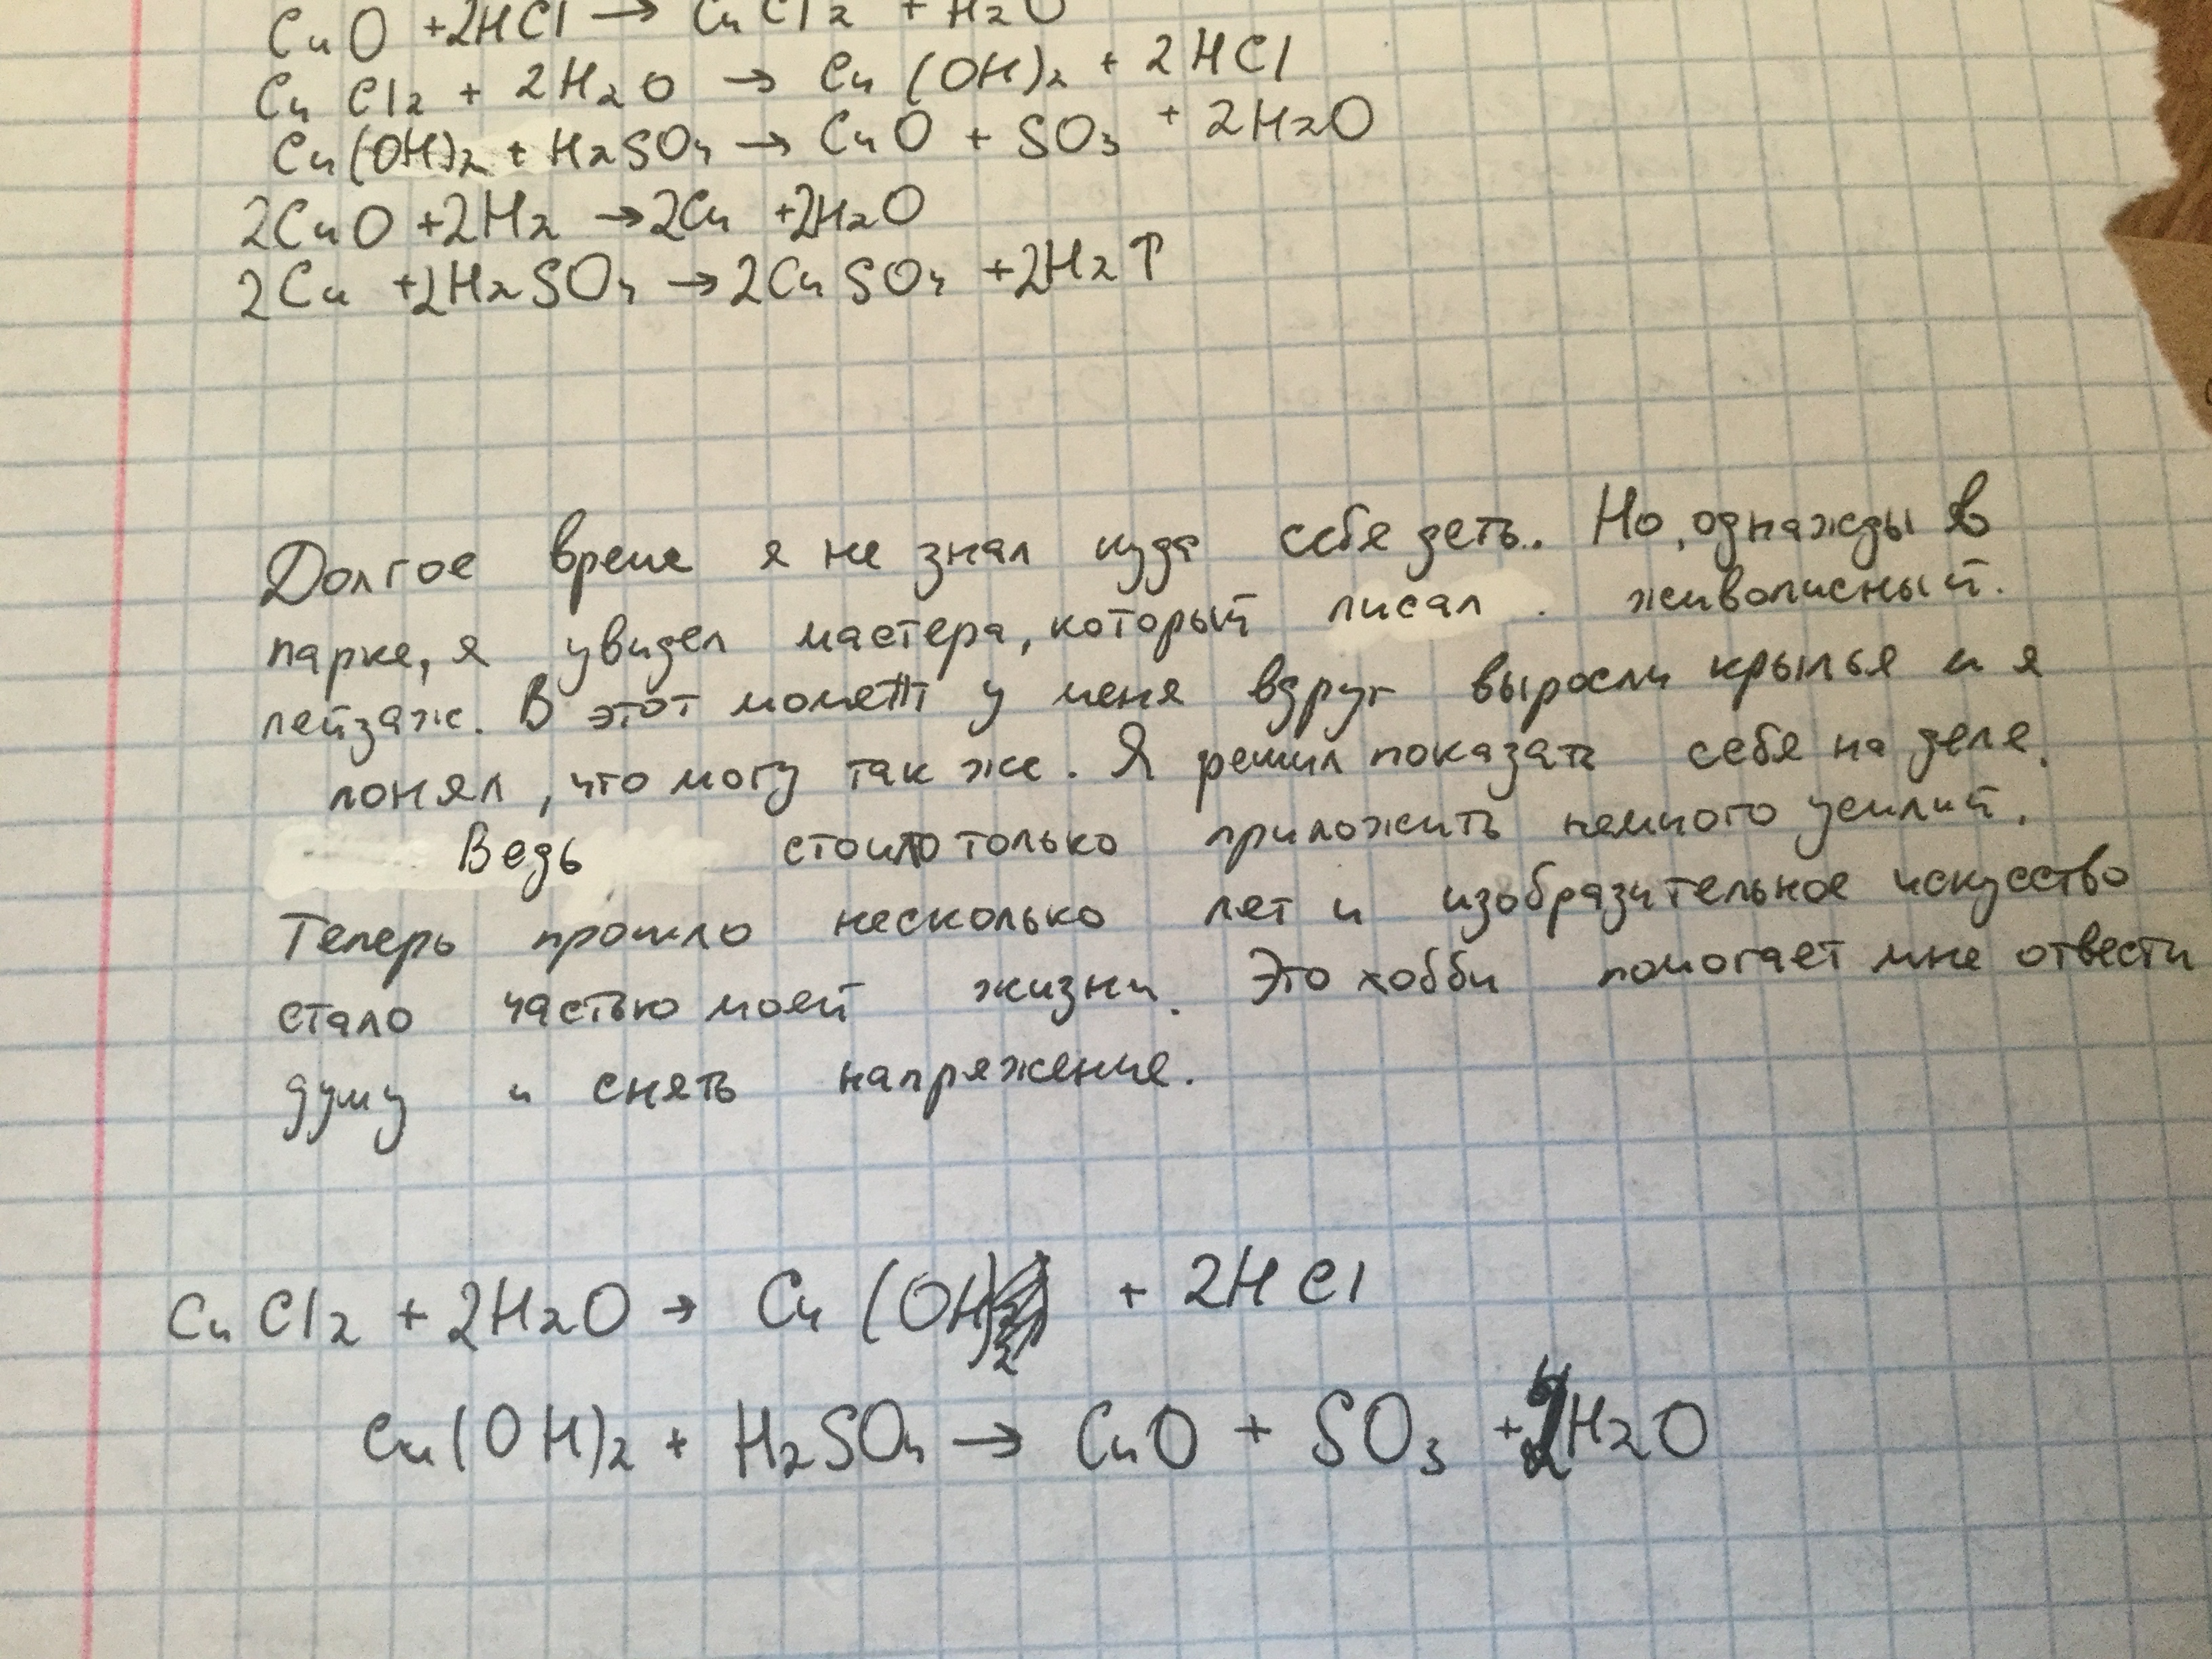 CuO +2HCl → CuCl2 + H2O
CuCl2 + 2H2O → Cu(OH)2 + 2HCl
Cu(OH)2 + H2SO4 → CuO + SO3 + 2H2O
2CuO +2H2 → 2Cu +2H2O
2Cu +2H2SO4 → 2CuSO4 +2H2↑
Долгое время я не знал куда себя деть. Но, однажды в
парке, я увидел мастера, который писал живописный
пейзаж. В этот момент у меня вдруг выросли крылья и я
понял, что могу так же. Я решил показать себя на деле.
Ведь стоило только приложить немного усилий.
Теперь прошло несколько лет и изобразительное искусство
стало частью моей жизни. Это хобби помогает мне отвести
душу и снять напряжение.
CuCl2 + 2H2O → Cu(OH)2 + 2HCl
Cu(OH)2 + H2SO4 → CuO + SO3 + 2H2O